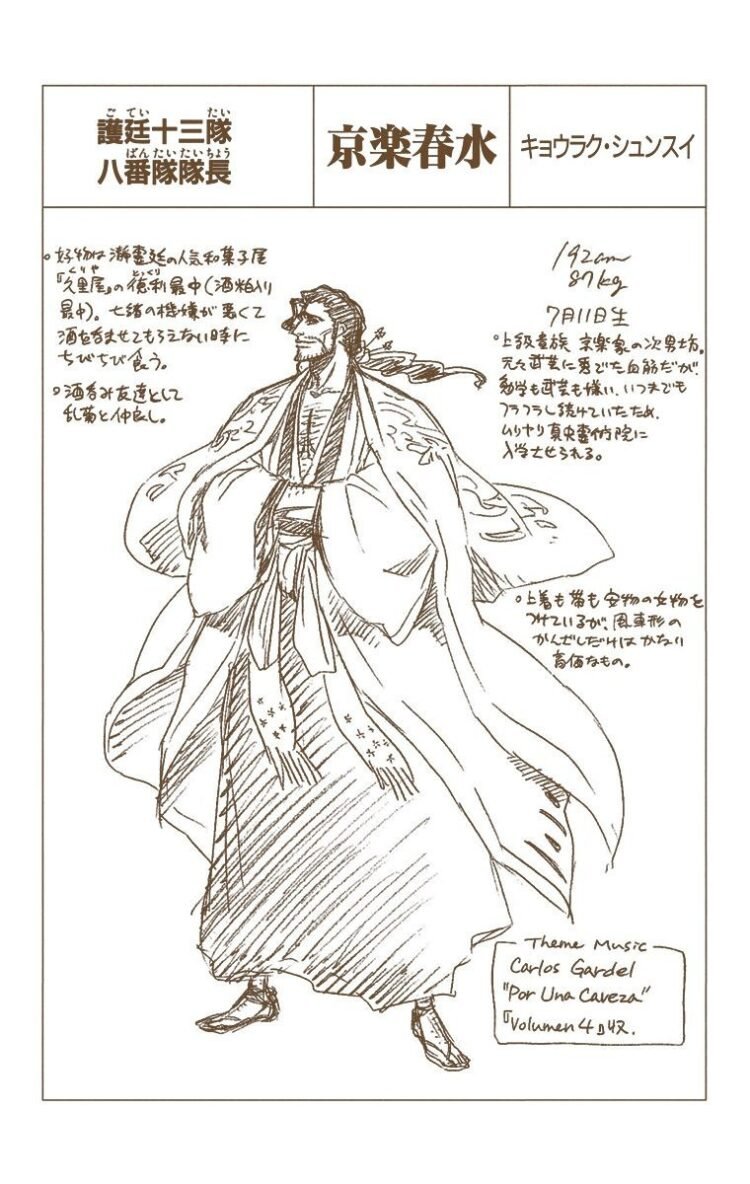 護廷十三隊
八番隊隊長
京楽春水
キョウラク・シュンスイ
。好物は瀞霊廷の人気和菓子屋
『久里屋』の徳利最中(酒粕入り
最中)。七緒の機嫌が悪くて
酒を呑ませてもらえない時に
ちびちび食う。
。酒呑み友達として
乱菊と仲良し。
192cm
87kg
7月11日生
。上級貴族 京楽家の次男坊。
元々武芸に秀でた血筋だが、
勉学も武芸も嫌い、いつまでも
フラフラし続けていたため、
ムリヤリ真央霊術院に
入学させられる。
。上着も帯も安物の女物を
つけているが、風車形の
かんざしだけはかなり
高価なもの。
Theme Music
Carlos Gardel
"Por Una Caveza"
『Volumen 4』収.